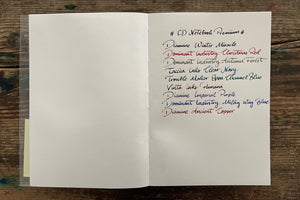 # CD Notebook Premium #
Diamine Winter Miracle
Dominant Industry Christmas Red
Dominant Industry Autumn Forest
Taccia Ukiyo-e
Trouble Maker Boon Channel Blue
Vinta Inks Humana
Diamine Imperial Purple
Dominant Industry Milky Way Blue
Diamine Ancient Copper